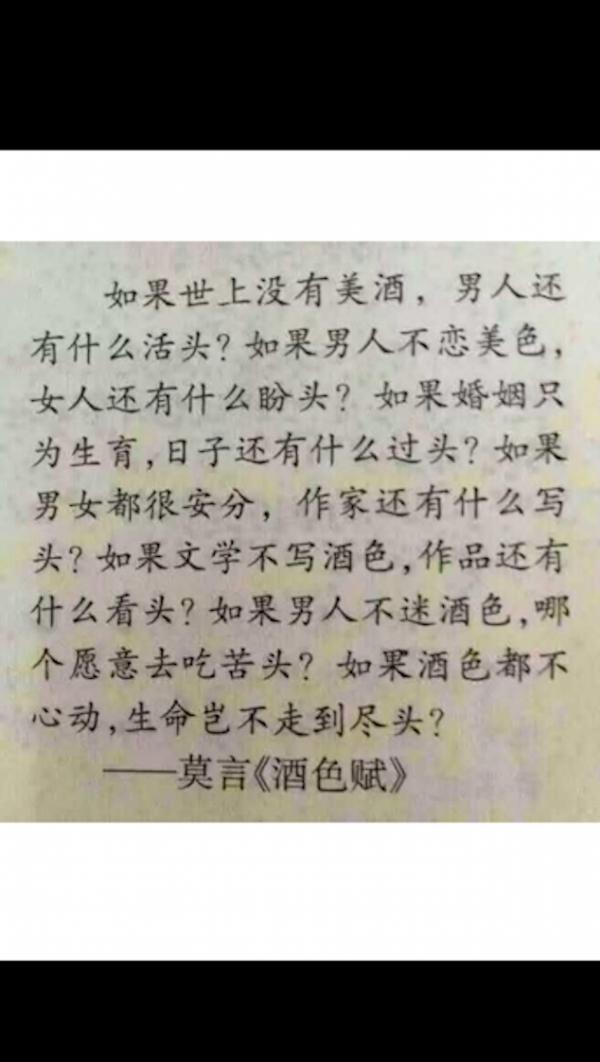 如果世上没有美酒，男人还
有什么活头？如果男人不恋美色，
女人还有什么盼头？如果婚姻只
为生育，日子还有什么过头？如果
男女都很安分，作家还有什么写
头？如果文学不写酒色，作品还有
什么看头？如果男人不迷酒色，哪
个愿意去吃苦头？如果酒色都不
心动，生命岂不走到尽头？
——莫言《酒色赋》